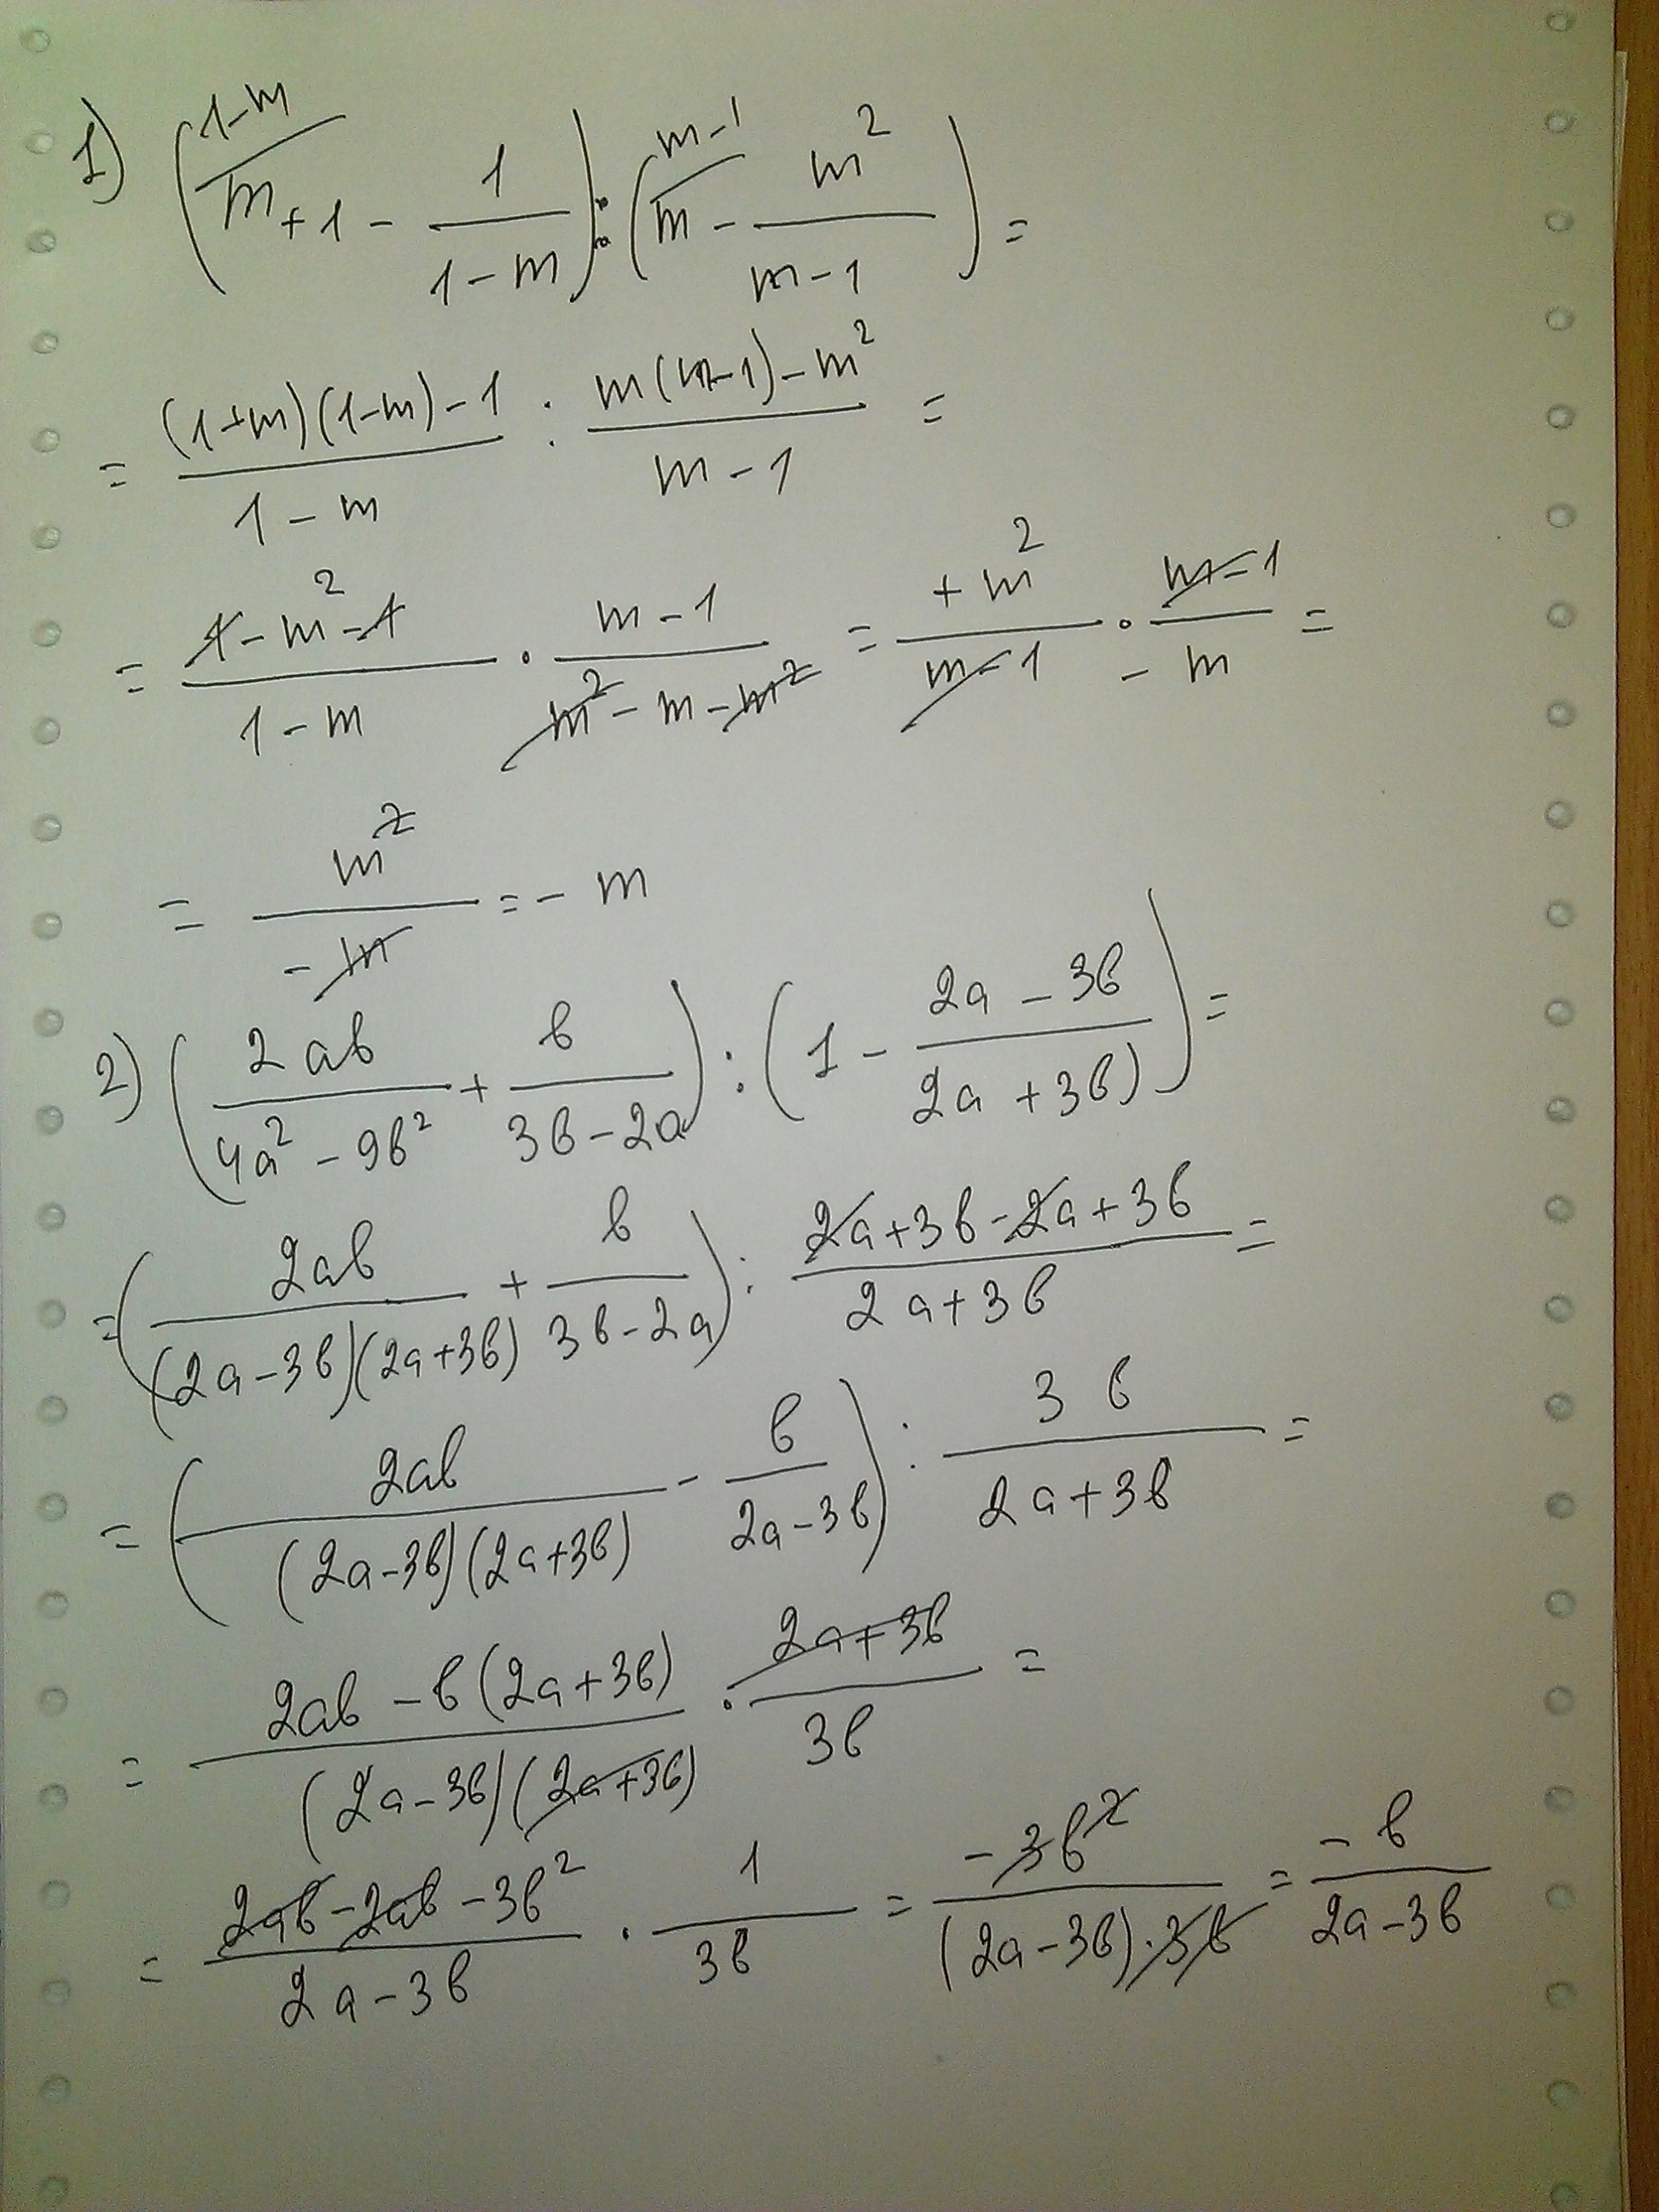 1) (1-m / m+1 - 1/(1-m)) : (m-1 / m - m²/(m-1)) =
= ((1+m)(1-m)-1)/(1-m) : (m(m-1)-m²)/(m-1) =
= (1-m²-1)/(1-m) · (m-1)/(m²-m-m²) = (+m²)/(m-1) · (m-1)/(-m) =
= m²/(-m) = -m
2) (2ab/(4a²-9b²) + b/(3b-2a)) : (1 - (2a-3b)/(2a+3b)) =
= (2ab/((2a-3b)(2a+3b)) + b/(3b-2a)) : (2a+3b-2a+3b)/(2a+3b) =
= (2ab/((2a-3b)(2a+3b)) - b/(2a-3b)) : 3b/(2a+3b) =
= (2ab-b(2a+3b))/((2a-3b)(2a+3b)) · (2a+3b)/3b =
= (2ab-2ab-3b²)/(2a-3b) · 1/3b = (-3b²)/((2a-3b)·3b) = (-b)/(2a-3b)